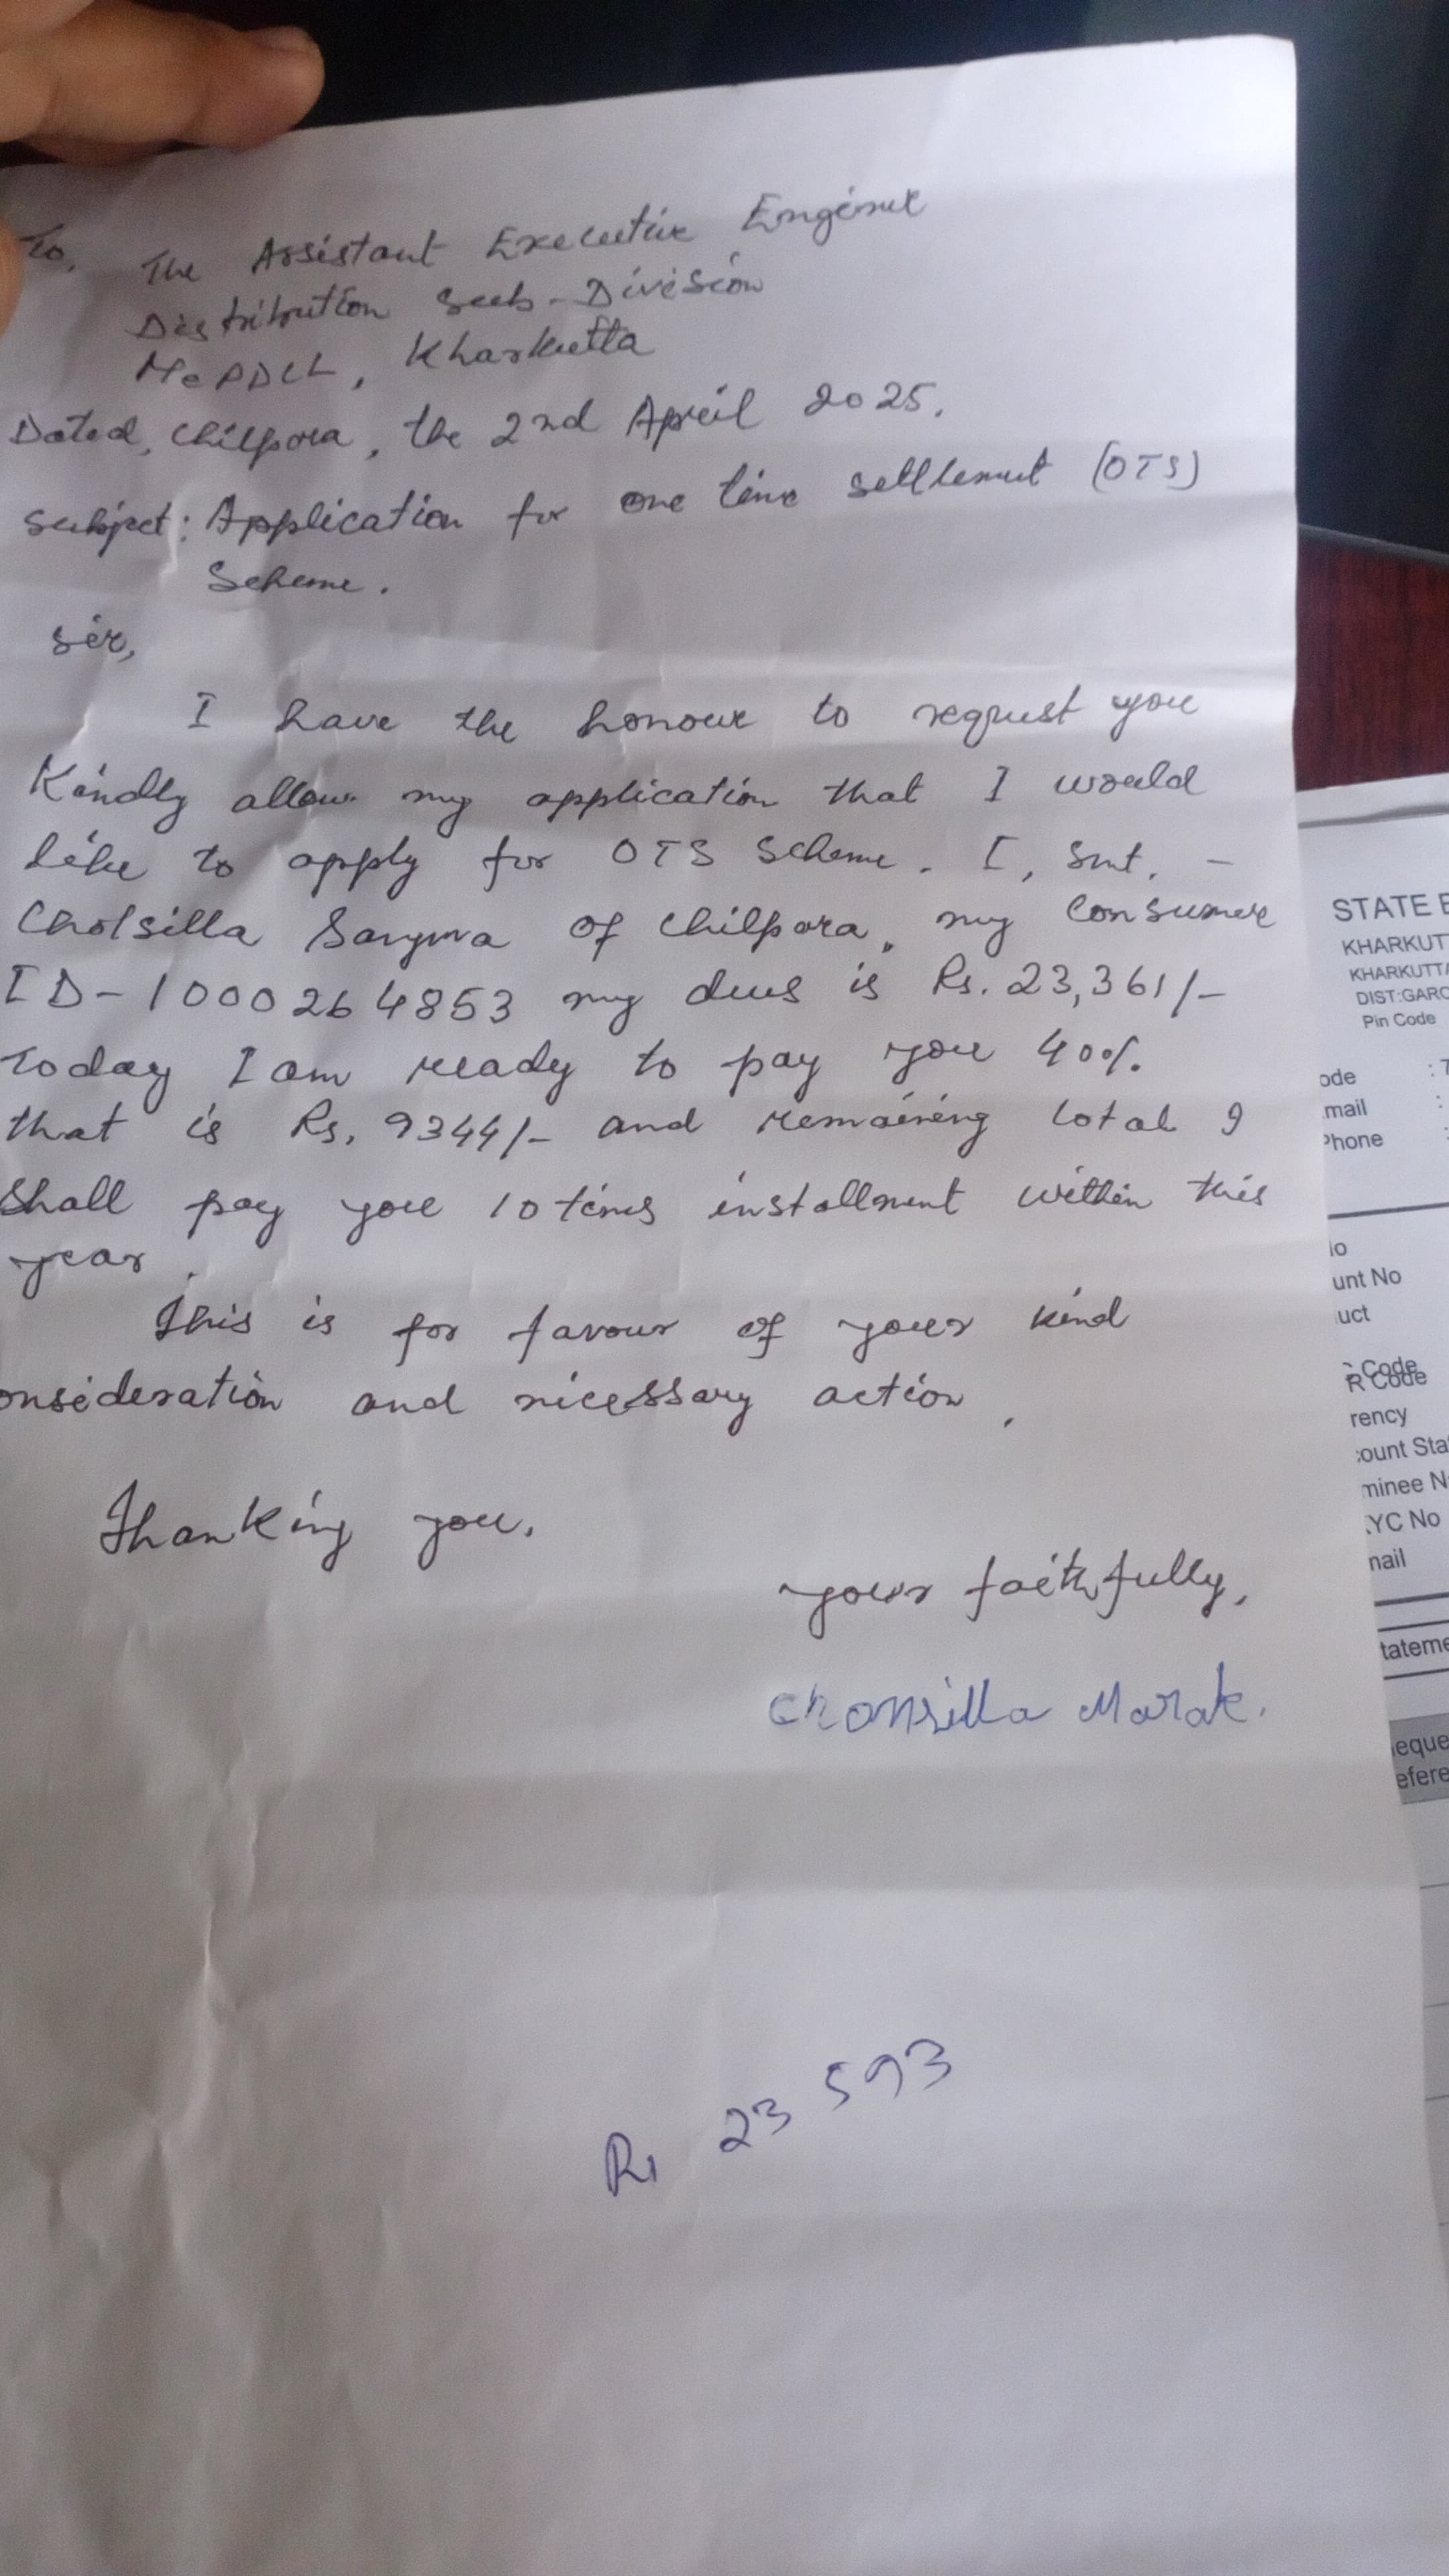 To,
The Assistant Executive Engineer
Distribution Sub-Division
MePDCL, Kharkutta
Dated, Chilpara, the 2nd April 2025.
Subject: Application for one time settlement (OTS)
Scheme.
Sir,
I have the honour to request you
Kindly allow my application that I would
like to apply for OTS Scheme. I, Smt. -
Cholsilla Sangma of Chilpara, my Consumer
ID-1000264853 my dues is Rs. 23,361/-
Today I am ready to pay you 40%.
that is Rs. 9344/- and remaining total I
Shall pay you 10 times installment within this
year.
This is for favour of your kind
onsideration and necessary action.
Thanking you.
Your faithfully,
Chonsilla Marak.
Rs 23 593
STATE B
KHARKUTT
KHARKUTTA
DIST:GARO
Pin Code
ode : 7
mail :
Phone :
lo
unt No
uct
Code
R Code
rency
ount Sta
minee N
YC No
nail
tateme
eque
efere